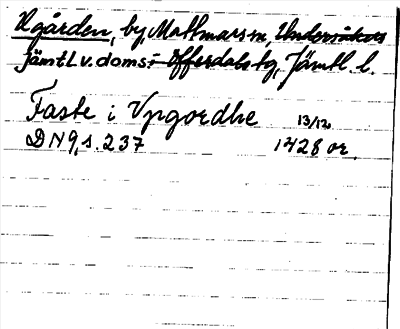 Ugården, by, Mattmars sn, Undersåkers
Jämtl. v. doms- Offerdals tg, Jämtl. l.
Faste i Vpgordhe 13/12
DN 9, s. 237 1428 or.